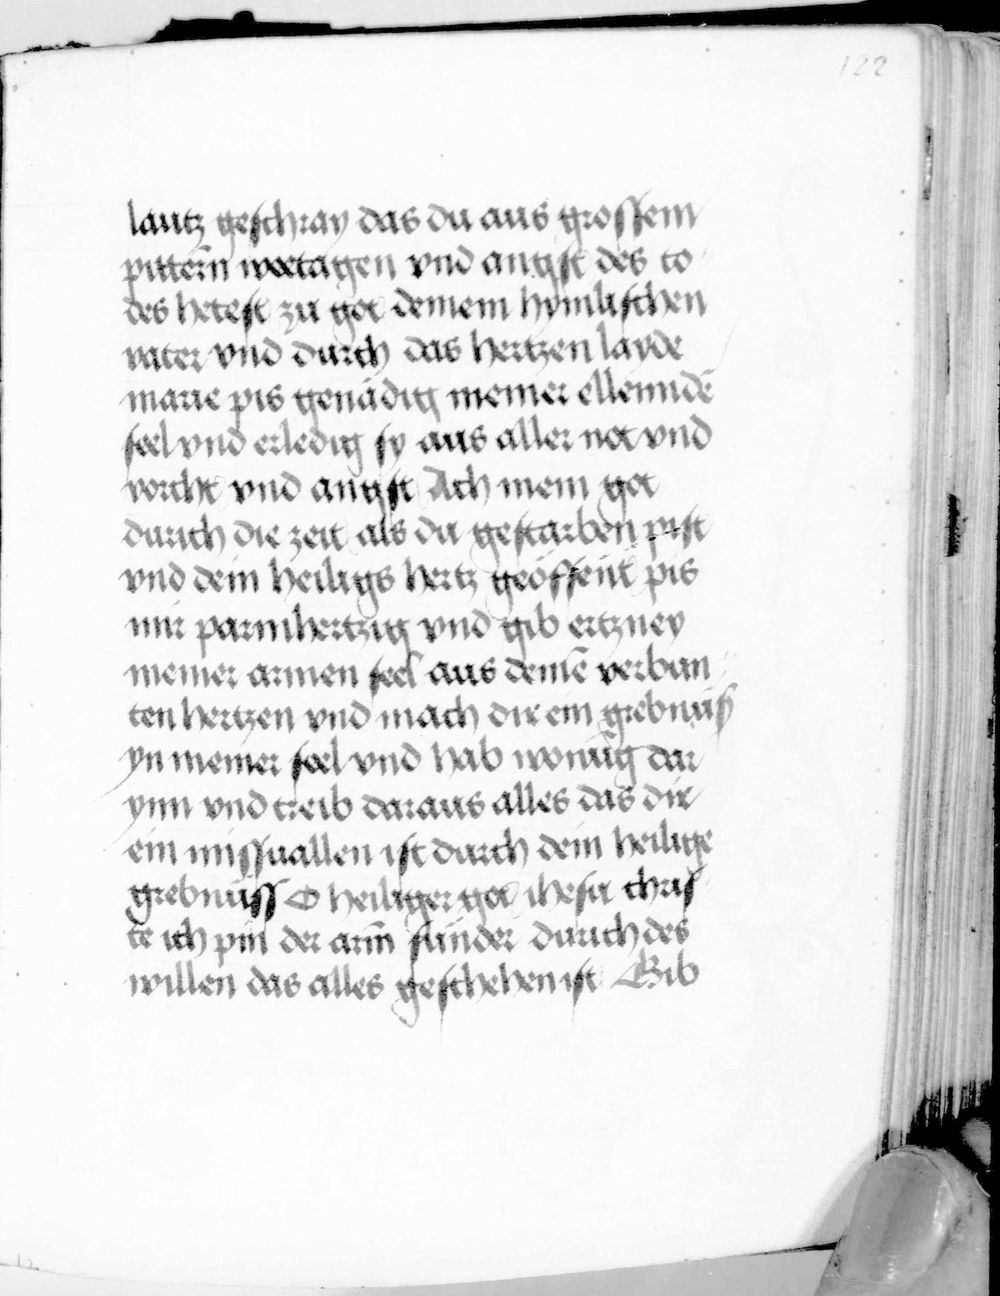 122
lautz geschray das du aus grossem
pittern̄ wetagen vnd angst des to
des hetest zu got deinem hymlischen
vater vnd durch das hertzen layde
marie pis genädig meiner ellenndē
seel vnd erledig sy aus aller not vnd
vorcht vnd angst Ach mein got
durich die zeit als du gestarben pist
vnd dein heiligs hertz geöffent pis
mir parmhertzig vnd gib ertzney
meiner armen seel aus deinē verbun
ten hertzen vnd mach dir ein grebnüß
yn meiner seel vnd hab wonūg dar
ynn vnd treib daraus alles das dir
ein missuallen ist durch dein heilige
grebnüss O heiliger got ihesu chris
te ich pin der arm̄ sünder durich des
willen das alles geschehen ist Gib